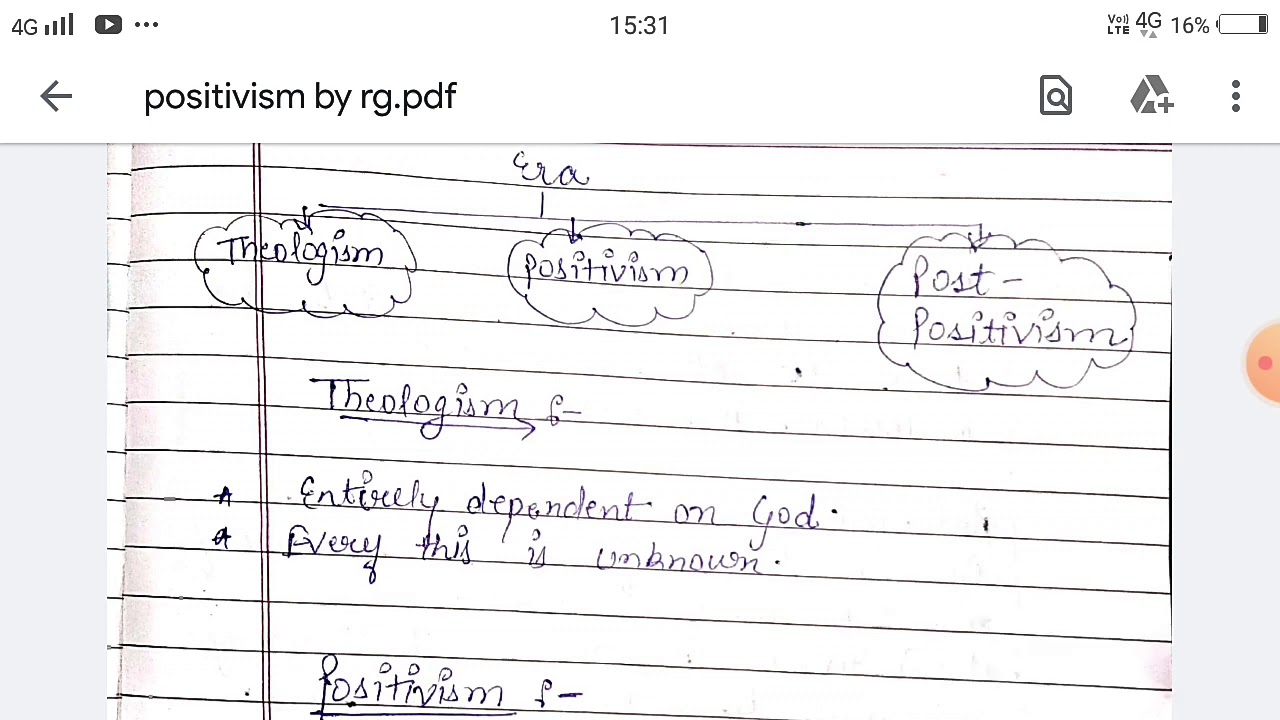 4G 15:31 Vo) LTE 4G 16%
positivism by rg.pdf
Era
Theologism Positivism Post-
Positivism
Theologism :-
Entirely dependent on God.
Every this is unknown.
Positivism :-